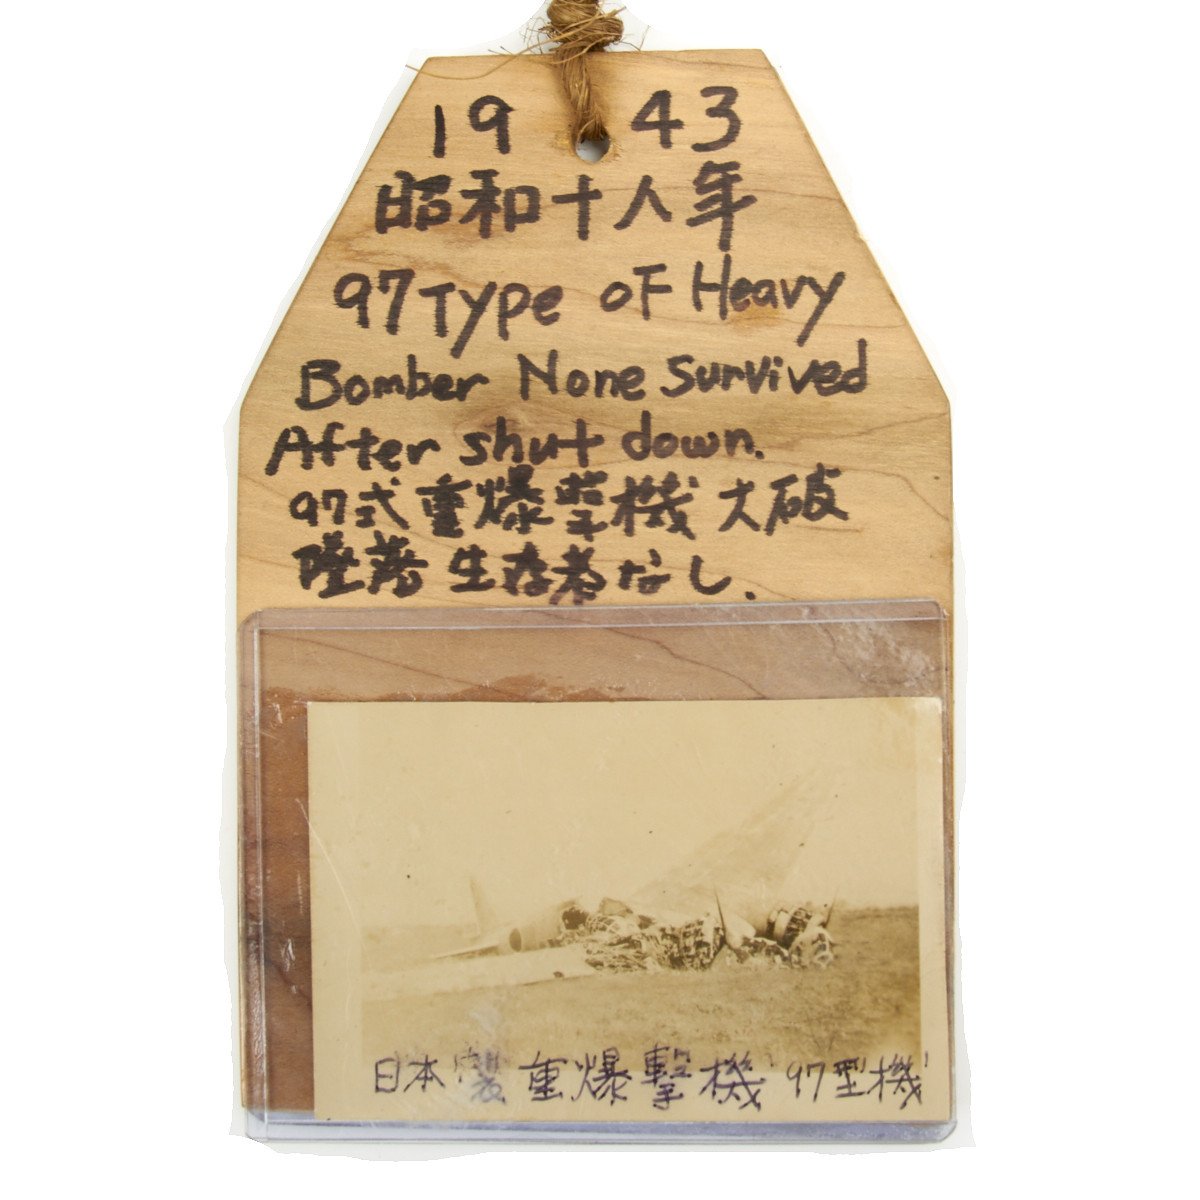 1943
昭和十八年
97 Type of Heavy
Bomber None survived
After shut down.
97式重爆撃機 大破
陸落 生存者なし.
日本製 重爆撃機 "97型機"